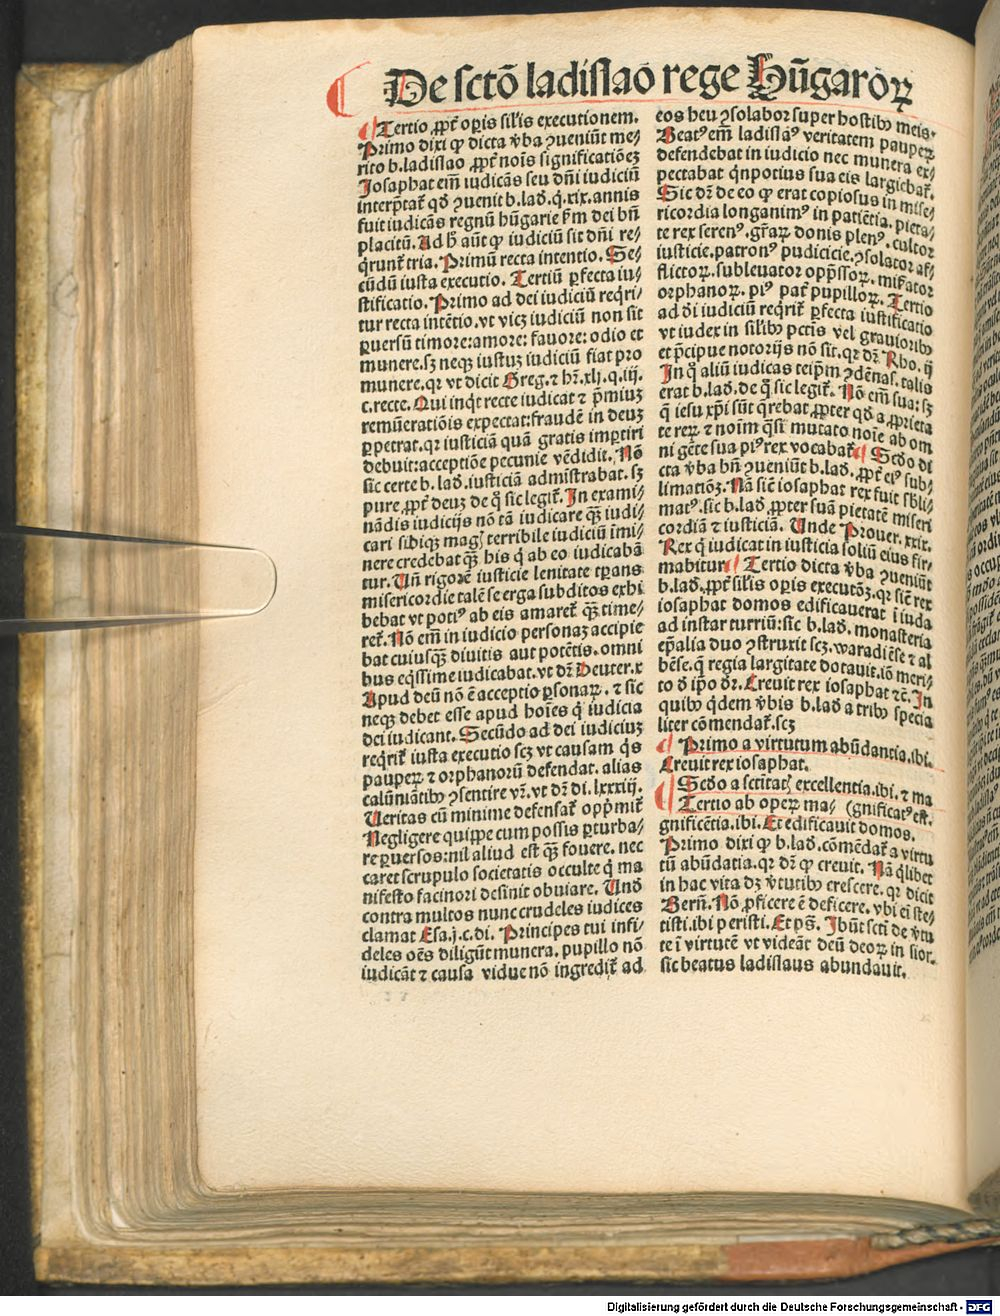 De sctō ladislao rege Hūgaroꝝ
¶Tertio ꝓpt̄ oꝑis silīs executionem.
Primo dixi ꝙ dicta v̄ba ꝯueniūt me/
rito b.ladislao ꝓpt̄ noīs significatiōeꝫ
Josaphat em̄ iudicās seu dn̄i iudiciū
interp̄tat̄ qd̄ ꝯuenit b.lad̄.q̇.xix.annis
fuit iudicās regnū hūgarie ẜm dei bn̄
placitū.Ad h̄ aūt ꝙ iudiciū sit dn̄i re/
q̇runt̄ tria.Primū recta intentio.Se/
cūdū iusta executio.Tertiū ꝑfecta iu/
stificatio.Primo ad dei iudiciū reqri/
tur recta intētio.vt vicꝫ iudiciū non sit
ꝑuersū timore:amore:fauore:odio et
munere.sꝫ neqꝫ iustuꝫ iudiciū fiat pro
munere.qꝛ vt dicit Greg.⁊ hr̄.xlj.q.iij.
c.recte.Qui inq̇t recte iudicat ⁊ p̄miuꝫ
remūeratiōis expectat:fraudē in deuꝫ
ꝑpetrat.qꝛ iusticiā quā gratis imꝑtiri
debuit:acceptiōe pecunie vēdidit.Nō
sic certe b.lad̄.iusticiā admīstrabat.sꝫ
pure ꝓpt̄ deuꝫ de q̊ sic legit̄.In exami/
nādis iudicijs nō tā iudicare qꝫ̄ iudi/
cari sibiqꝫ magꝭ terribile iudiciū īmi/
nere credebat qꝫ̄ his q̇ ab eo iudicabā
tur.Un̄ rigorē iusticie lenitate tꝑans
misericordie talē se erga subditos exhi
bebat vt potiꝰ ab eis amaret̄ qꝫ̄ time/
ret̄.Nō em̄ in iudicio personaꝫ accipie
bat cuiusqꝫ̄ diuitis aut potētis.omni
bus eq̇ssime iudicabat.vt dꝫ̄ Deuter.x
Apud deū nō ē acceptio ꝑsonaꝝ.⁊ sic
neqꝫ debet esse apud hoīes q̇ iudicia
dei iudicant.Secūdo ad dei iudiciuꝫ
reqrit̄ iusta executio scꝫ vt causam q̇s
pauperꝝ ⁊ orphanorū defendat.alias
calūniātibꝰ ꝯsentire vr̄.vt dꝫ̄ di.lxxxiij.
Ueritas cū minime defensat̄ oppͥmit̄
Negligere quippe cum possis ꝑturba/
re ꝑuersos:nil aliud est qꝫ̄ fouere.nec
caret scrupulo societatis occulte q̇ ma
nifesto facinori desinit obuiare.Und̄
contra multos nunc crudeles iudices
clamat Esa.j.c.di.Principes tui infi/
deles oēs diligūt munera.pupillo nō
iudicāt ⁊ causa vidue nō ingredit̄ ad
eos heu ꝯsolabor super hostibꝰ meis.
Beatꝰ em̄ ladislaꝰ veritatem pauperꝝ
defendebat in iudicio nec munera ex/
pectabat qnpotius sua eis largiebat̄.
Sic dꝫ̄ de eo ꝙ erat copiosus in mise/
ricordia longanimꝰ in patiētia.pieta/
te rex serenꝰ.gr̄aꝝ donis plenꝰ.cultor
iusticie.patronꝰ pudicicie.ꝯsolator af/
flictoꝝ.subleuator opp̄ssoꝝ.miẜator
orphanoꝝ.piꝰ pat̄ pupilloꝝ.Tertio
ad d̄i iudiciū reqrit̄ ꝑfecta iustificatio
vt iudex in silībꝰ pctīs vel grauioribꝰ
et p̄cipue notorijs nō sit.qꝛ dꝫ̄ Rho.ij
In q̊ aliū iudicas teip̄m ꝯdēnas.talis
erat b.lad̄.de q̊ sic legit̄.Nō em̄ sua:sꝫ
q̄ iesu xp̄i sūt q̄rebat ꝓpter qd̄ a ꝓprieta
te reꝝ ⁊ noīm q̄si mutato noīe ab om
ni gēte sua piꝰ rex vocabat̄.¶Sc̄do di
cta v̄ba bn̄ ꝯueniūt b.lad̄.ꝓpt̄ eiꝰ sub/
limatiōꝫ.Nā sic̄ iosaphat rex fuit sbli/
matꝰ.sic b.lad̄.ꝓpter suā pietatē miseri
cordiā ⁊ iusticiā.Unde Prouer.xxix.
Rex q̇ iudicat in iusticia soliū eius fir/
mabitur.¶Tertio dicta v̄ba ꝯueniūt
b.lad̄.ꝓpt̄ silīs oꝑis executōꝫ.qꝛ sic̄ rex
iosaphat domos edificauerat ī iuda
ad instar turriū:sic b.lad̄.monasteria
ep̄alia duo ꝯstruxit scꝫ.waradiēse ⁊ al
bēse.q̄ regia largitate dotauit.iō meri/
to d̄ ip̄o dr̄.Creuit rex iosaphat ⁊c̄.In
quibꝰ q̇dem v̄bis b.lad̄ a tribꝰ specia
liter cōmendat̄.scꝫ
¶Primo a virtutum abūdantia.ibi.
Creuit rex iosaphat.
¶Scd̄o a sctītatꝭ excellentia.ibi.⁊ ma
Tertio ab operꝝ ma/ (gnificatꝰ est.
gnificētia.ibi.Et edificauit domos.
Primo dixi ꝙ b.lad̄.cōmēdat̄ a virtu
tū abūdatia.qꝛ dꝫ̄ ꝙ creuit.Nā q̇libet
in hac vita dꝫ v̄tutibꝰ crescere.qꝛ dicit
Bern̄.Nō ꝓficere ē deficere.vbi ei ste/
tisti.ibi peristi.Et pꝰ.Ibūt sctī de v̄tu
te ī virtutē vt videāt̄ deū deoꝝ in sion.
sic beatus ladislaus abundauit.
Digitalisierung gefördert durch die Deutsche Forschungsgemeinschaft - DFG